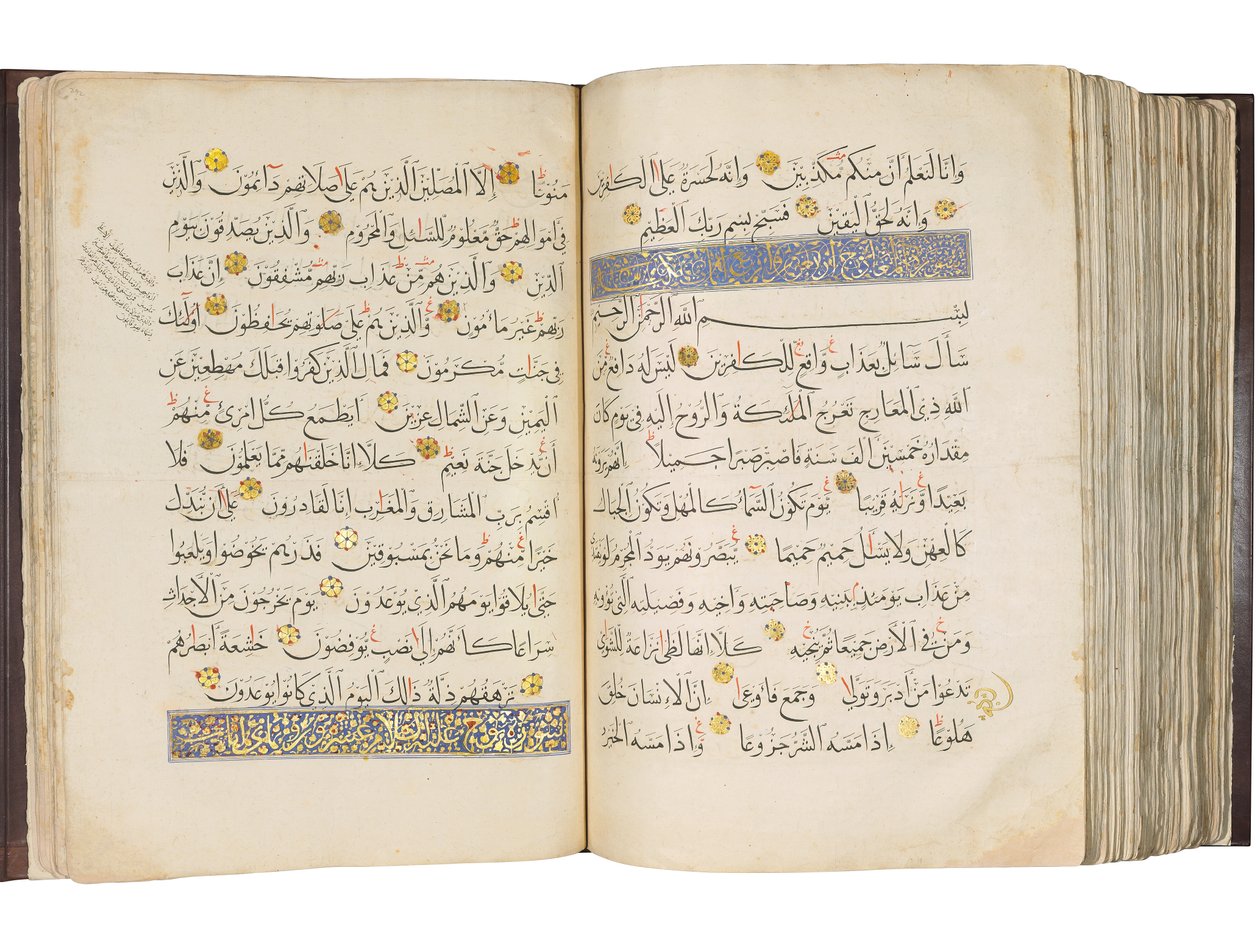 وَاِنَّا لَنَعْلَمُ اَنَّ مِنْكُمْ مُكَذِّبِيْنَ وَاِنَّهُ لَحَسْرَةٌ عَلَى الْكَافِرِيْنَ
وَاِنَّهُ لَحَقُّ الْيَقِيْنِ فَسَبِّحْ بِسْمِ رَبِّكَ الْعَظِيْمِ
بِسْمِ اللّٰهِ الرَّحْمٰنِ الرَّحِيْمِ
سَاَلَ سَائِلٌ بِعَذَابٍ وَاقِعٍ لِلْكَافِرِيْنَ لَيْسَ لَهُ دَافِعٌ مِنَ
اللّٰهِ ذِي الْمَعَارِجِ تَعْرُجُ الْمَلٰئِكَةُ وَالرُّوْحُ اِلَيْهِ فِي يَوْمٍ كَانَ
مِقْدَارُهُ خَمْسِيْنَ اَلْفَ سَنَةٍ فَاصْبِرْ صَبْرًا جَمِيْلًا اِنَّهُمْ يَرَوْنَهُ
بَعِيْدًا وَنَرَاهُ قَرِيْبًا يَوْمَ تَكُوْنُ السَّمَاءُ كَالْمُهْلِ وَتَكُوْنُ الْجِبَالُ
كَالْعِهْنِ وَلَا يَسْـَٔلُ حَمِيْمٌ حَمِيْمًا يُبَصَّرُوْنَهُمْ يَوَدُّ الْمُجْرِمُ لَوْ يَفْتَدِي
مِنْ عَذَابِ يَوْمَئِذٍ بِبَنِيْهِ وَصَاحِبَتِهِ وَاَخِيْهِ وَفَصِيْلَتِهِ الَّتِي تُؤْوِيْهِ
وَمَنْ فِي الْاَرْضِ جَمِيْعًا ثُمَّ يُنْجِيْهِ كَلَّا اِنَّهَا لَظٰى نَزَّاعَةً لِلشَّوٰى
تَدْعُوْا مَنْ اَدْبَرَ وَتَوَلّٰى وَجَمَعَ فَاَوْعٰى اِنَّ الْاِنْسَانَ خُلِقَ
هَلُوْعًا اِذَا مَسَّهُ الشَّرُّ جَزُوْعًا وَاِذَا مَسَّهُ الْخَيْرُ
مَنُوْعًا اِلَّا الْمُصَلِّيْنَ الَّذِيْنَ هُمْ عَلٰى صَلَاتِهِمْ دَائِمُوْنَ وَالَّذِيْنَ
فِي اَمْوَالِهِمْ حَقٌّ مَعْلُوْمٌ لِلسَّائِلِ وَالْمَحْرُوْمِ وَالَّذِيْنَ يُصَدِّقُوْنَ بِيَوْمِ
الدِّيْنِ وَالَّذِيْنَ هُمْ مِنْ عَذَابِ رَبِّهِمْ مُشْفِقُوْنَ اِنَّ عَذَابَ
رَبِّهِمْ غَيْرُ مَاْمُوْنٍ وَالَّذِيْنَ هُمْ عَلٰى صَلٰوتِهِمْ يُحَافِظُوْنَ اُولٰئِكَ
فِي جَنَّاتٍ مُكْرَمُوْنَ فَمَالِ الَّذِيْنَ كَفَرُوْا قِبَلَكَ مُهْطِعِيْنَ عَنِ
الْيَمِيْنِ وَعَنِ الشِّمَالِ عِزِيْنَ اَيَطْمَعُ كُلُّ امْرِئٍ مِنْهُمْ
اَنْ يُدْخَلَ جَنَّةَ نَعِيْمٍ كَلَّا اِنَّا خَلَقْنَاهُمْ مِمَّا يَعْلَمُوْنَ فَلَا
اُقْسِمُ بِرَبِّ الْمَشَارِقِ وَالْمَغَارِبِ اِنَّا لَقَادِرُوْنَ عَلٰى اَنْ نُبَدِّلَ
خَيْرًا مِنْهُمْ وَمَا نَحْنُ بِمَسْبُوْقِيْنَ فَذَرْهُمْ يَخُوْضُوْا وَيَلْعَبُوْا
حَتّٰى يُلَاقُوْا يَوْمَهُمُ الَّذِي يُوْعَدُوْنَ يَوْمَ يَخْرُجُوْنَ مِنَ الْاَجْدَاثِ
سِرَاعًا كَاَنَّهُمْ اِلٰى نُصُبٍ يُوْفِضُوْنَ خَاشِعَةً اَبْصَارُهُمْ
تَرْهَقُهُمْ ذِلَّةٌ ذَالِكَ الْيَوْمُ الَّذِي كَانُوْا يُوْعَدُوْنَ